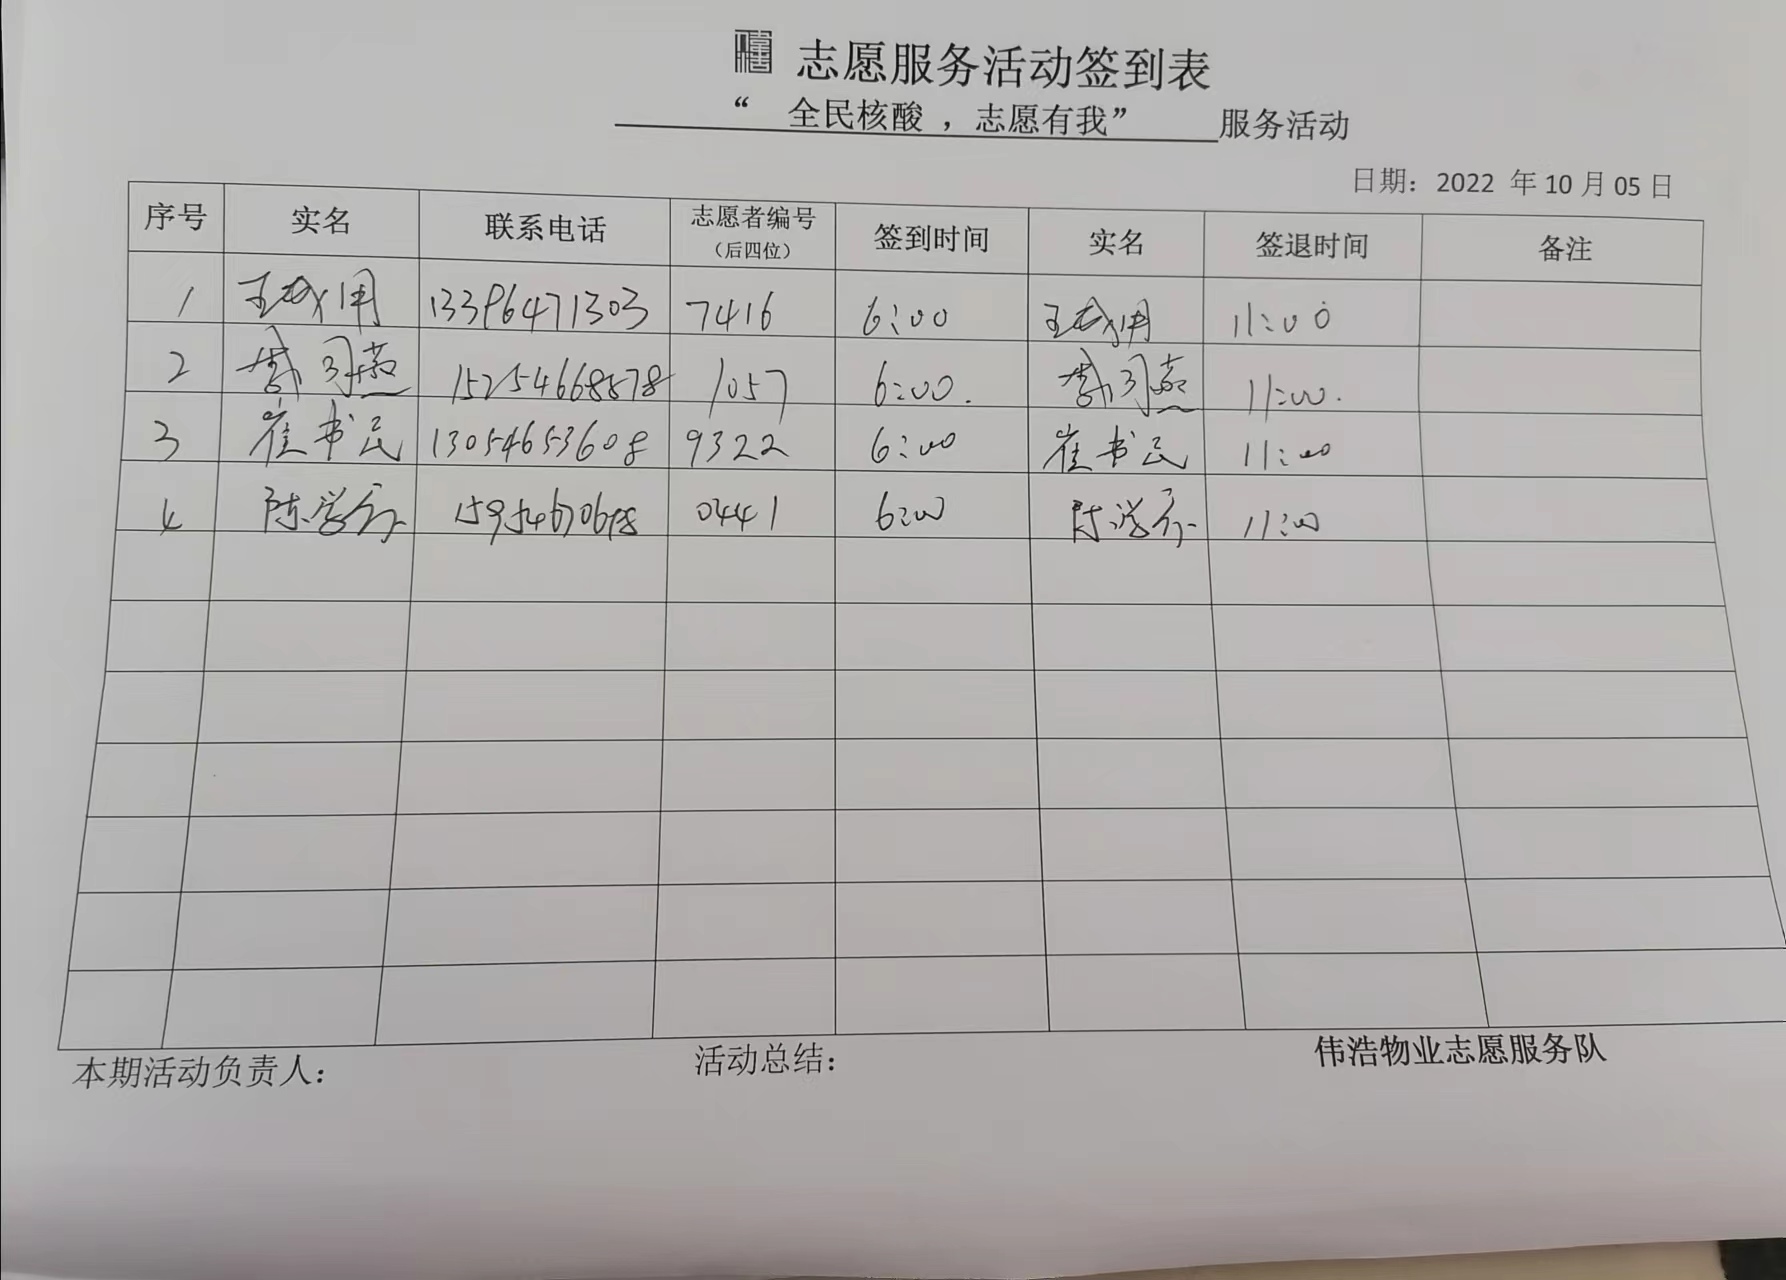 志愿服务活动签到表
“ 全民核酸 ，志愿有我” 服务活动
日期：2022 年 10 月 05 日
序号 实名 联系电话 志愿者编号（后四位） 签到时间 实名 签退时间 备注
1 13396471303 7416 6:00 11:00
2 15254668878 1057 6:00. 11:00.
3 崔书民 13054653608 9322 6:00 崔书民 11:00
4 0441 6:00 11:00
本期活动负责人： 活动总结： 伟浩物业志愿服务队